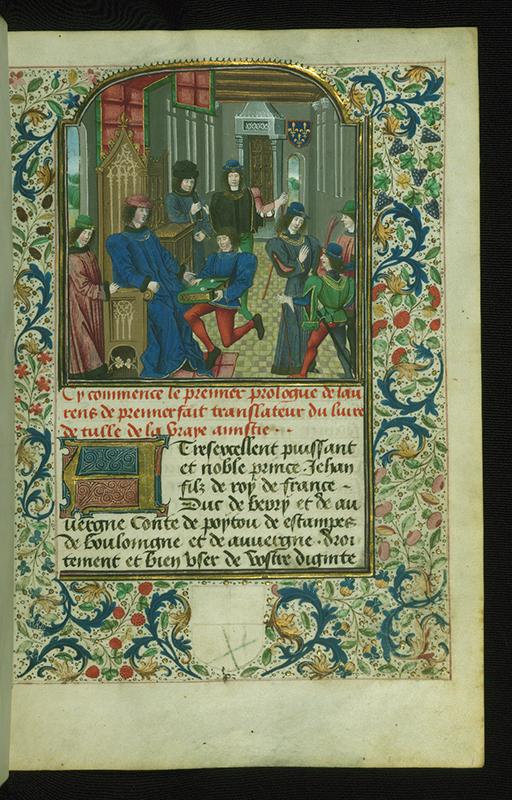 Cy commence le premier prologue de lau
rens de premierfait translateur du livre
de tulle de la vraye amistie .
A Tresexcellent puissant
et noble prince Jehan
filz de roy de france .
Duc de berry et de au
uergne Conte de poytou de estampes
de boulongne et de auuergne . Droi
tement et bien vser de vostre dignite